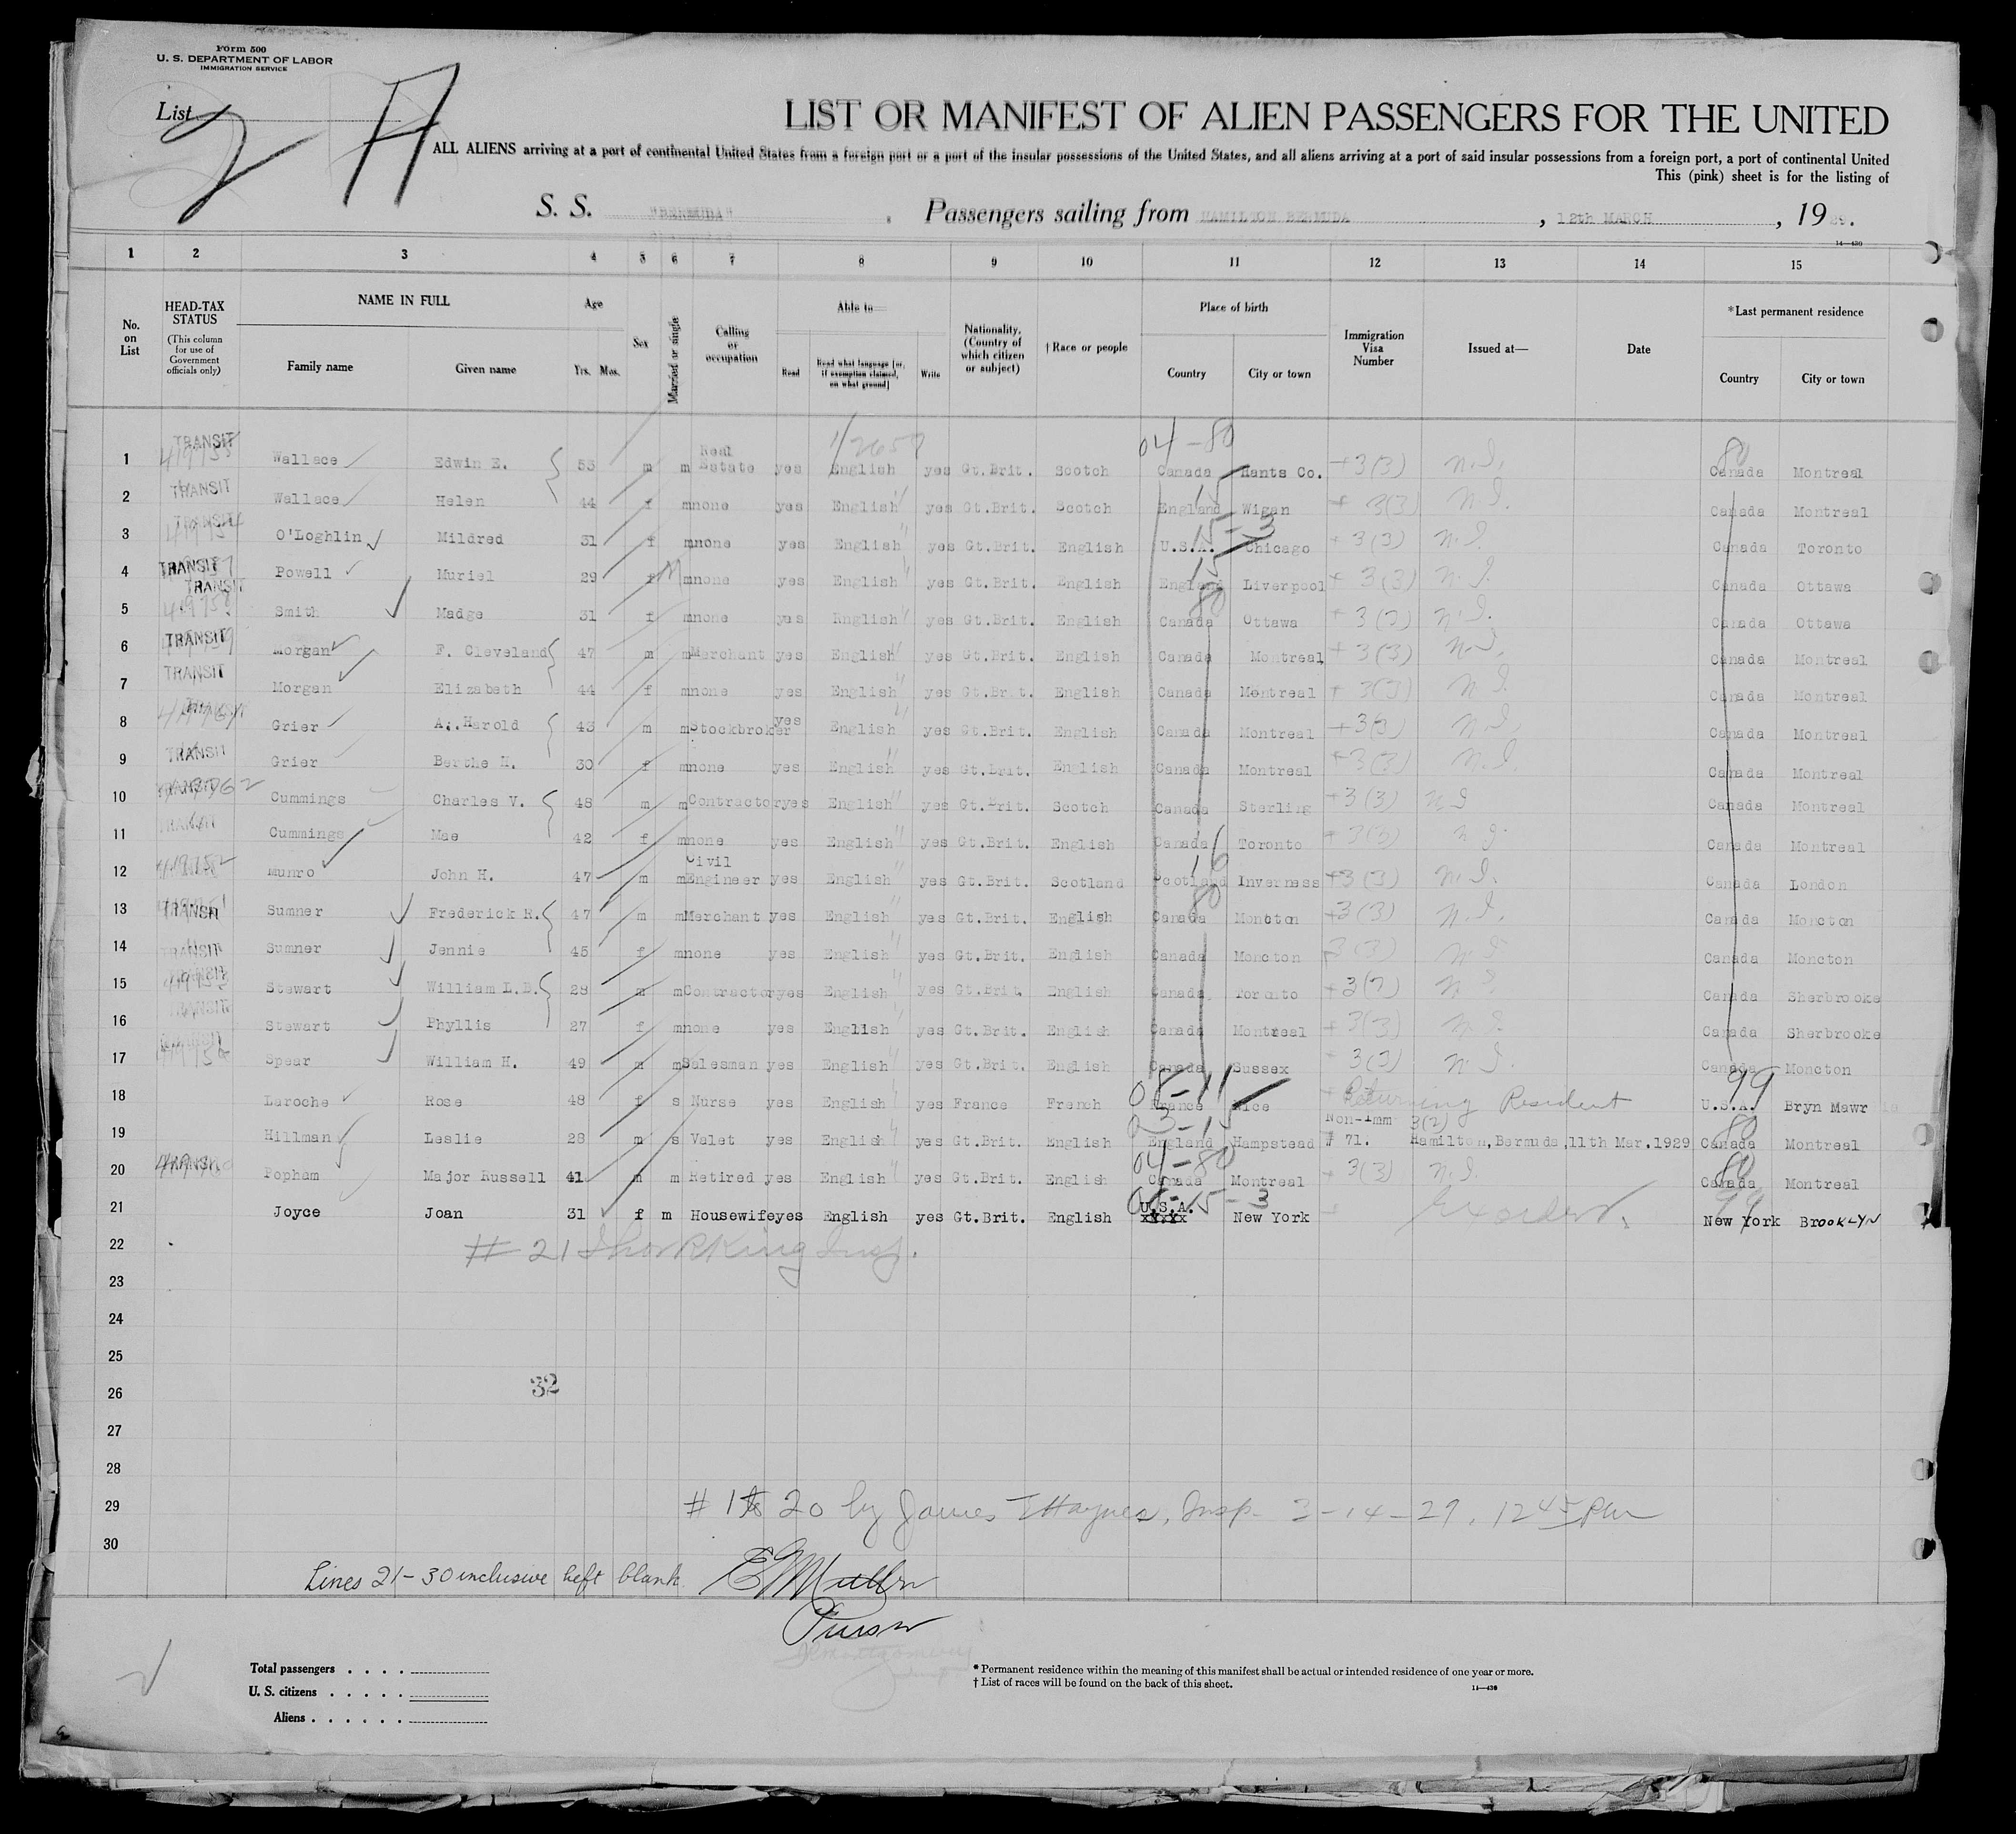 Form 500
U. S. DEPARTMENT OF LABOR
IMMIGRATION SERVICE
List 2 A
LIST OR MANIFEST OF ALIEN PASSENGERS FOR THE UNITED
ALL ALIENS arriving at a port of continental United States from a foreign port or a port of the insular possessions of the United States, and all aliens arriving at a port of said insular possessions from a foreign port, a port of continental United
This (pink) sheet is for the listing of
S. S. "BERMUDA" , Passengers sailing from HAMILTON BERMUDA , 12th MARCH , 1929.
14—430
1 2 3 4 5 6 7 8 9 10 11 12 13 14 15
No. on List
HEAD-TAX STATUS (This column for use of Government officials only)
NAME IN FULL
Family name Given name
Age Yrs. Mos.
Sex
Married or single
Calling or occupation
Able to—
Read Read what language [or, if exemption claimed, on what ground] Write
Nationality. (Country of which citizen or subject)
† Race or people
Place of birth
Country City or town
Immigration Visa Number
Issued at—
Date
*Last permanent residence
Country City or town
04-80 80
1 TRANSIT Wallace Edwin E. 53 m m Real Estate yes English yes Gt.Brit. Scotch Canada Hants Co. +3(3) N.I. Canada Montreal
2 TRANSIT Wallace Helen 44 f m none yes English yes Gt.Brit. Scotch England Wigan + 3(3) N.I. Canada Montreal
3 TRANSIT O'Loghlin Mildred 31 f m none yes English yes Gt.Brit. English U.S.A. Chicago + 3(3) N.I. Canada Toronto
4 TRANSIT Powell Muriel 29 f m none yes English yes Gt.Brit. English England Liverpool + 3(3) N.I. Canada Ottawa
5 TRANSIT Smith Madge 31 f m none yes English yes Gt.Brit. English Canada Ottawa +3(3) N.I. Canada Ottawa
6 TRANSIT Morgan F. Cleveland 47 m m Merchant yes English yes Gt.Brit. English Canada Montreal +3(3) N.I. Canada Montreal
7 TRANSIT Morgan Elizabeth 44 f m none yes English yes Gt.Brit. English Canada Montreal + 3(3) N.I. Canada Montreal
8 Grier A..Harold 43 m m Stockbroker yes English yes Gt.Brit. English Canada Montreal +3(3) N.I. Canada Montreal
9 TRANSIT Grier Berthe H. 30 f m none yes English yes Gt.Brit. English Canada Montreal +3(3) N.I. Canada Montreal
10 TRANSIT Cummings Charles V. 48 m m Contractor yes English yes Gt.Brit. Scotch Canada Sterling +3(3) N.I Canada Montreal
11 TRANSIT Cummings Mae 42 f m none yes English yes Gt.Brit. English Canada Toronto + 3(3) N.I. Canada Montreal
12 Munro John H. 47 m m Civil Engineer yes English yes Gt.Brit. Scotland Scotland Inverness +3(3) N.I. Canada London
13 TRANSIT Sumner Frederick R. 47 m m Merchant yes English yes Gt.Brit. English Canada Moncton +3(3) N.I. Canada Moncton
14 TRANSIT Sumner Jennie 45 f m none yes English yes Gt.Brit. English Canada Moncton 3(3) N.I. Canada Moncton
15 TRANSIT Stewart William L.B. 28 m m Contractor yes English yes Gt.Brit. English Canada Toronto +3(3) N.I. Canada Sherbrooke
16 TRANSIT Stewart Phyllis 27 f m none yes English yes Gt.Brit. English Canada Montreal +3(3) N.I. Canada Sherbrooke
17 Spear William H. 49 m m Salesman yes English yes Gt.Brit. English Canada Sussex + 3(3) N.I. Canada Moncton
18 Laroche Rose 48 f s Nurse yes English yes France French France Nice Returning Resident U.S.A. Bryn Mawr
19 Hillman Leslie 28 m s Valet yes English yes Gt.Brit. English England Hampstead Non-Imm # 71. 3(2) Hamilton, Bermuda, 11th Mar.1929 Canada Montreal
20 TRANSIT Popham Major Russell 41 m m Retired yes English yes Gt.Brit. English Canada Montreal + 3(3) N.I. Canada Montreal
21 Joyce Joan 31 f m Housewife yes English yes Gt.Brit. English U.S.A. New York New York BROOKLYN
22 # 21 Insp.
23
24
25
26 32
27
28
29 # 1 to 20 by James T Haynes, Insp. 3-14-29, 12 45 PM
30
Lines 21-30 inclusive left blank. E Muller
Purser
Total passengers . . . .
U. S. citizens . . . . .
Aliens . . . . . .
* Permanent residence within the meaning of this manifest shall be actual or intended residence of one year or more.
† List of races will be found on the back of this sheet.
14—430